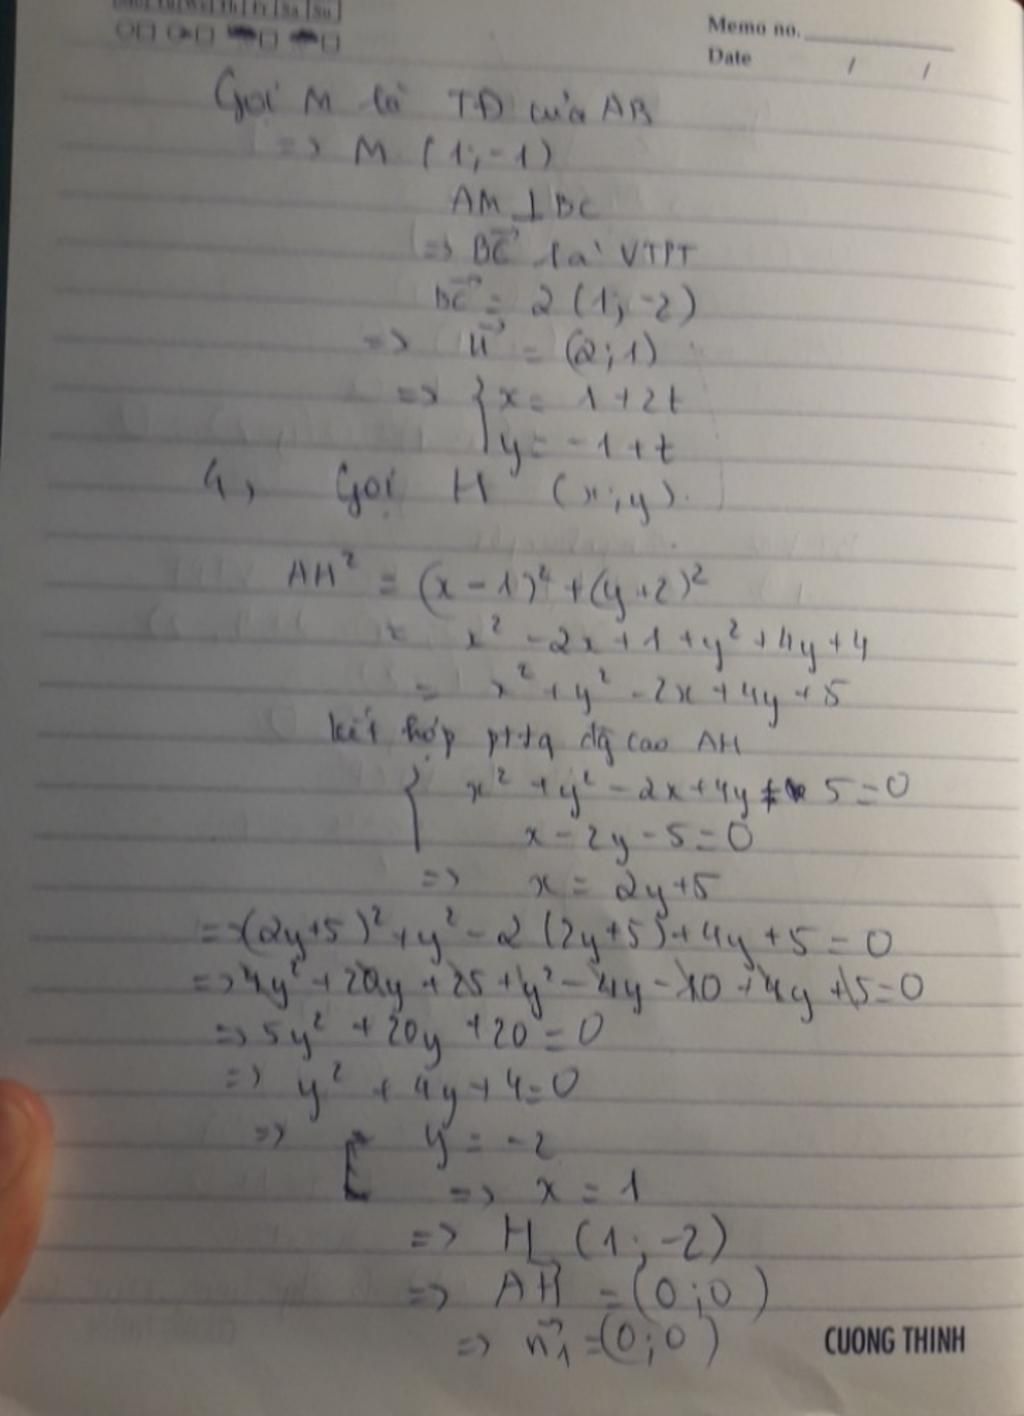 Memo no.
Date / /
Gọi M là TĐ của AB
=> M (1;-1)
AM ⊥ BC
=> BC→ là VTPT
BC→ = 2 (1; -2)
=> u→ = (2;1)
=> { x = 1+2t
y = -1+t
4, Gọi H (x;y).
AH² = (x-1)² + (y+2)²
= x² - 2x + 1 + y² + 4y + 4
= x² + y² - 2x + 4y + 5
kết hợp pttq đg cao AH
{ x² + y² - 2x + 4y + 5 = 0
x - 2y - 5 = 0
=> x = 2y+5
=> (2y+5)² + y² - 2 (2y+5) + 4y + 5 = 0
=> 4y² + 20y + 25 + y² - 4y - 10 + 4y + 5 = 0
=> 5y² + 20y + 20 = 0
=> y² + 4y + 4 = 0
=> [ y = -2
=> x = 1
=> H (1; -2)
=> AH→ = (0;0)
=> n→₁ = (0;0)
CUONG THINH